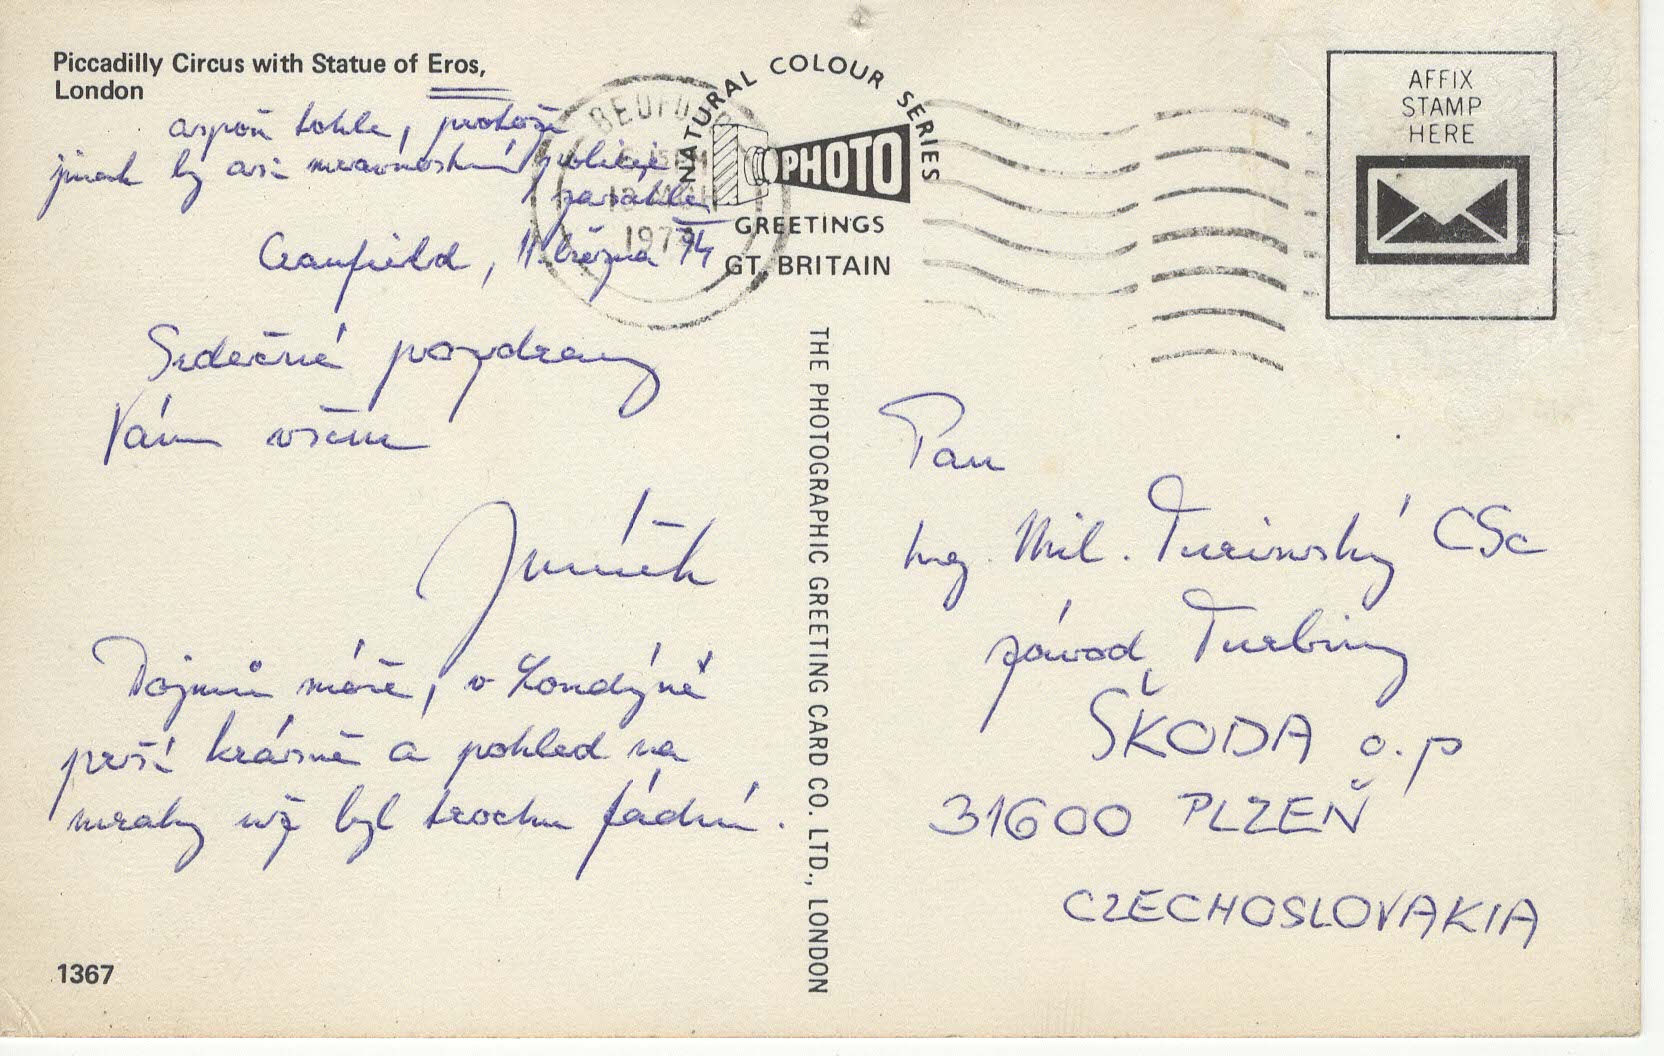 Piccadilly Circus with Statue of Eros,
London
aspoň tohle, protože
jinak by asi mravnostní policie
zasáhla
Cranfield, 11. března 74
Srdečné pozdravy
Vám všem
Dojmů móře, v Londýně
prší krásně a pohled na
mraky už byl trochu fádní.
1367
NATURAL COLOUR SERIES
PHOTO
GREETINGS
GT. BRITAIN
BEDFORD
197
THE PHOTOGRAPHIC GREETING CARD CO. LTD., LONDON
AFFIX
STAMP
HERE
Pan
Ing. Mil. Turinský CSc
závod Turbiny
ŠKODA o.p
31600 PLZEŇ
CZECHOSLOVAKIA